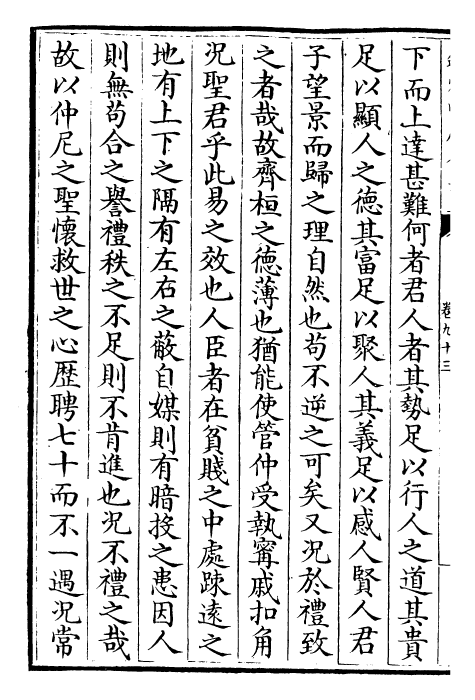 下而上達甚難何者君人者其勢足以行人之道其貴
足以顯人之德其富足以聚人其義足以感人賢人君
子望景而歸之理自然也苟不逆之可矣又況於禮致
之者哉故齊桓之德薄也猶能使管仲受執甯戚扣角
況聖君乎此易之效也人臣者在貧賤之中處疎遠之
地有上下之隔有左右之蔽自媒則有暗投之患因人
則無苟合之譽禮秩之不足則不肯進也況不禮之哉
故以仲尼之聖懷救世之心歴聘七十而不一遇況常
卷九十三